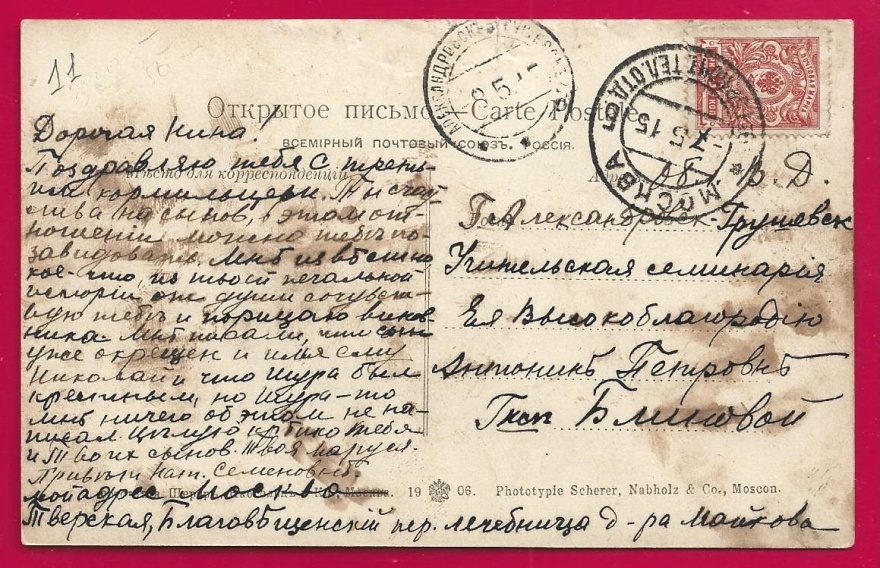 11
Открытое письмо. — Carte Postale
ВСЕМІРНЫЙ ПОЧТОВЫЙ СОЮЗЪ. РОССІЯ.
Мѣсто для корреспонденціи
Дорогая Нина!
Поздравляю тебя с треть-
им кормильцем. Ты счаст-
лива на сынов, в этом от-
ношеніи можно тебѣ по-
завидовать. Мнѣ извѣстно
кое-что, из твоей печальной
исторіи от души сочувст-
вую тебѣ и порицаю винов-
ника. Мнѣ писали, что сын
уже окрещен и имя ему
Николай и что Шура был
крестным, но Шура-то
мнѣ ничего об этом не на-
писал. Цѣлую крѣпко тебя
и твоих сынов. Твоя Маруся.
Привѣт Нат. Семеновнѣ.
мой адрес Москва
Тверская, Благовѣщенскій пер. лечебница д-ра Майкова
МОСКВА
7 5 15
8.5.
Об. В. Д.
Г. Александровск-Грушевск
Учительская семинария
Ея Высокоблагородію
Антонинѣ Петровнѣ
Гжѣ Блиновой
19 06. Phototypie Scherer, Nabholz & Co., Moscou.